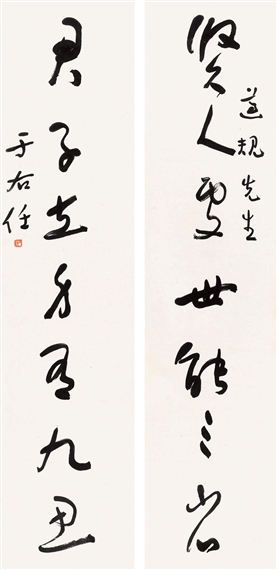 賢人處世能三省
道規先生
君子立身有九思
于右任